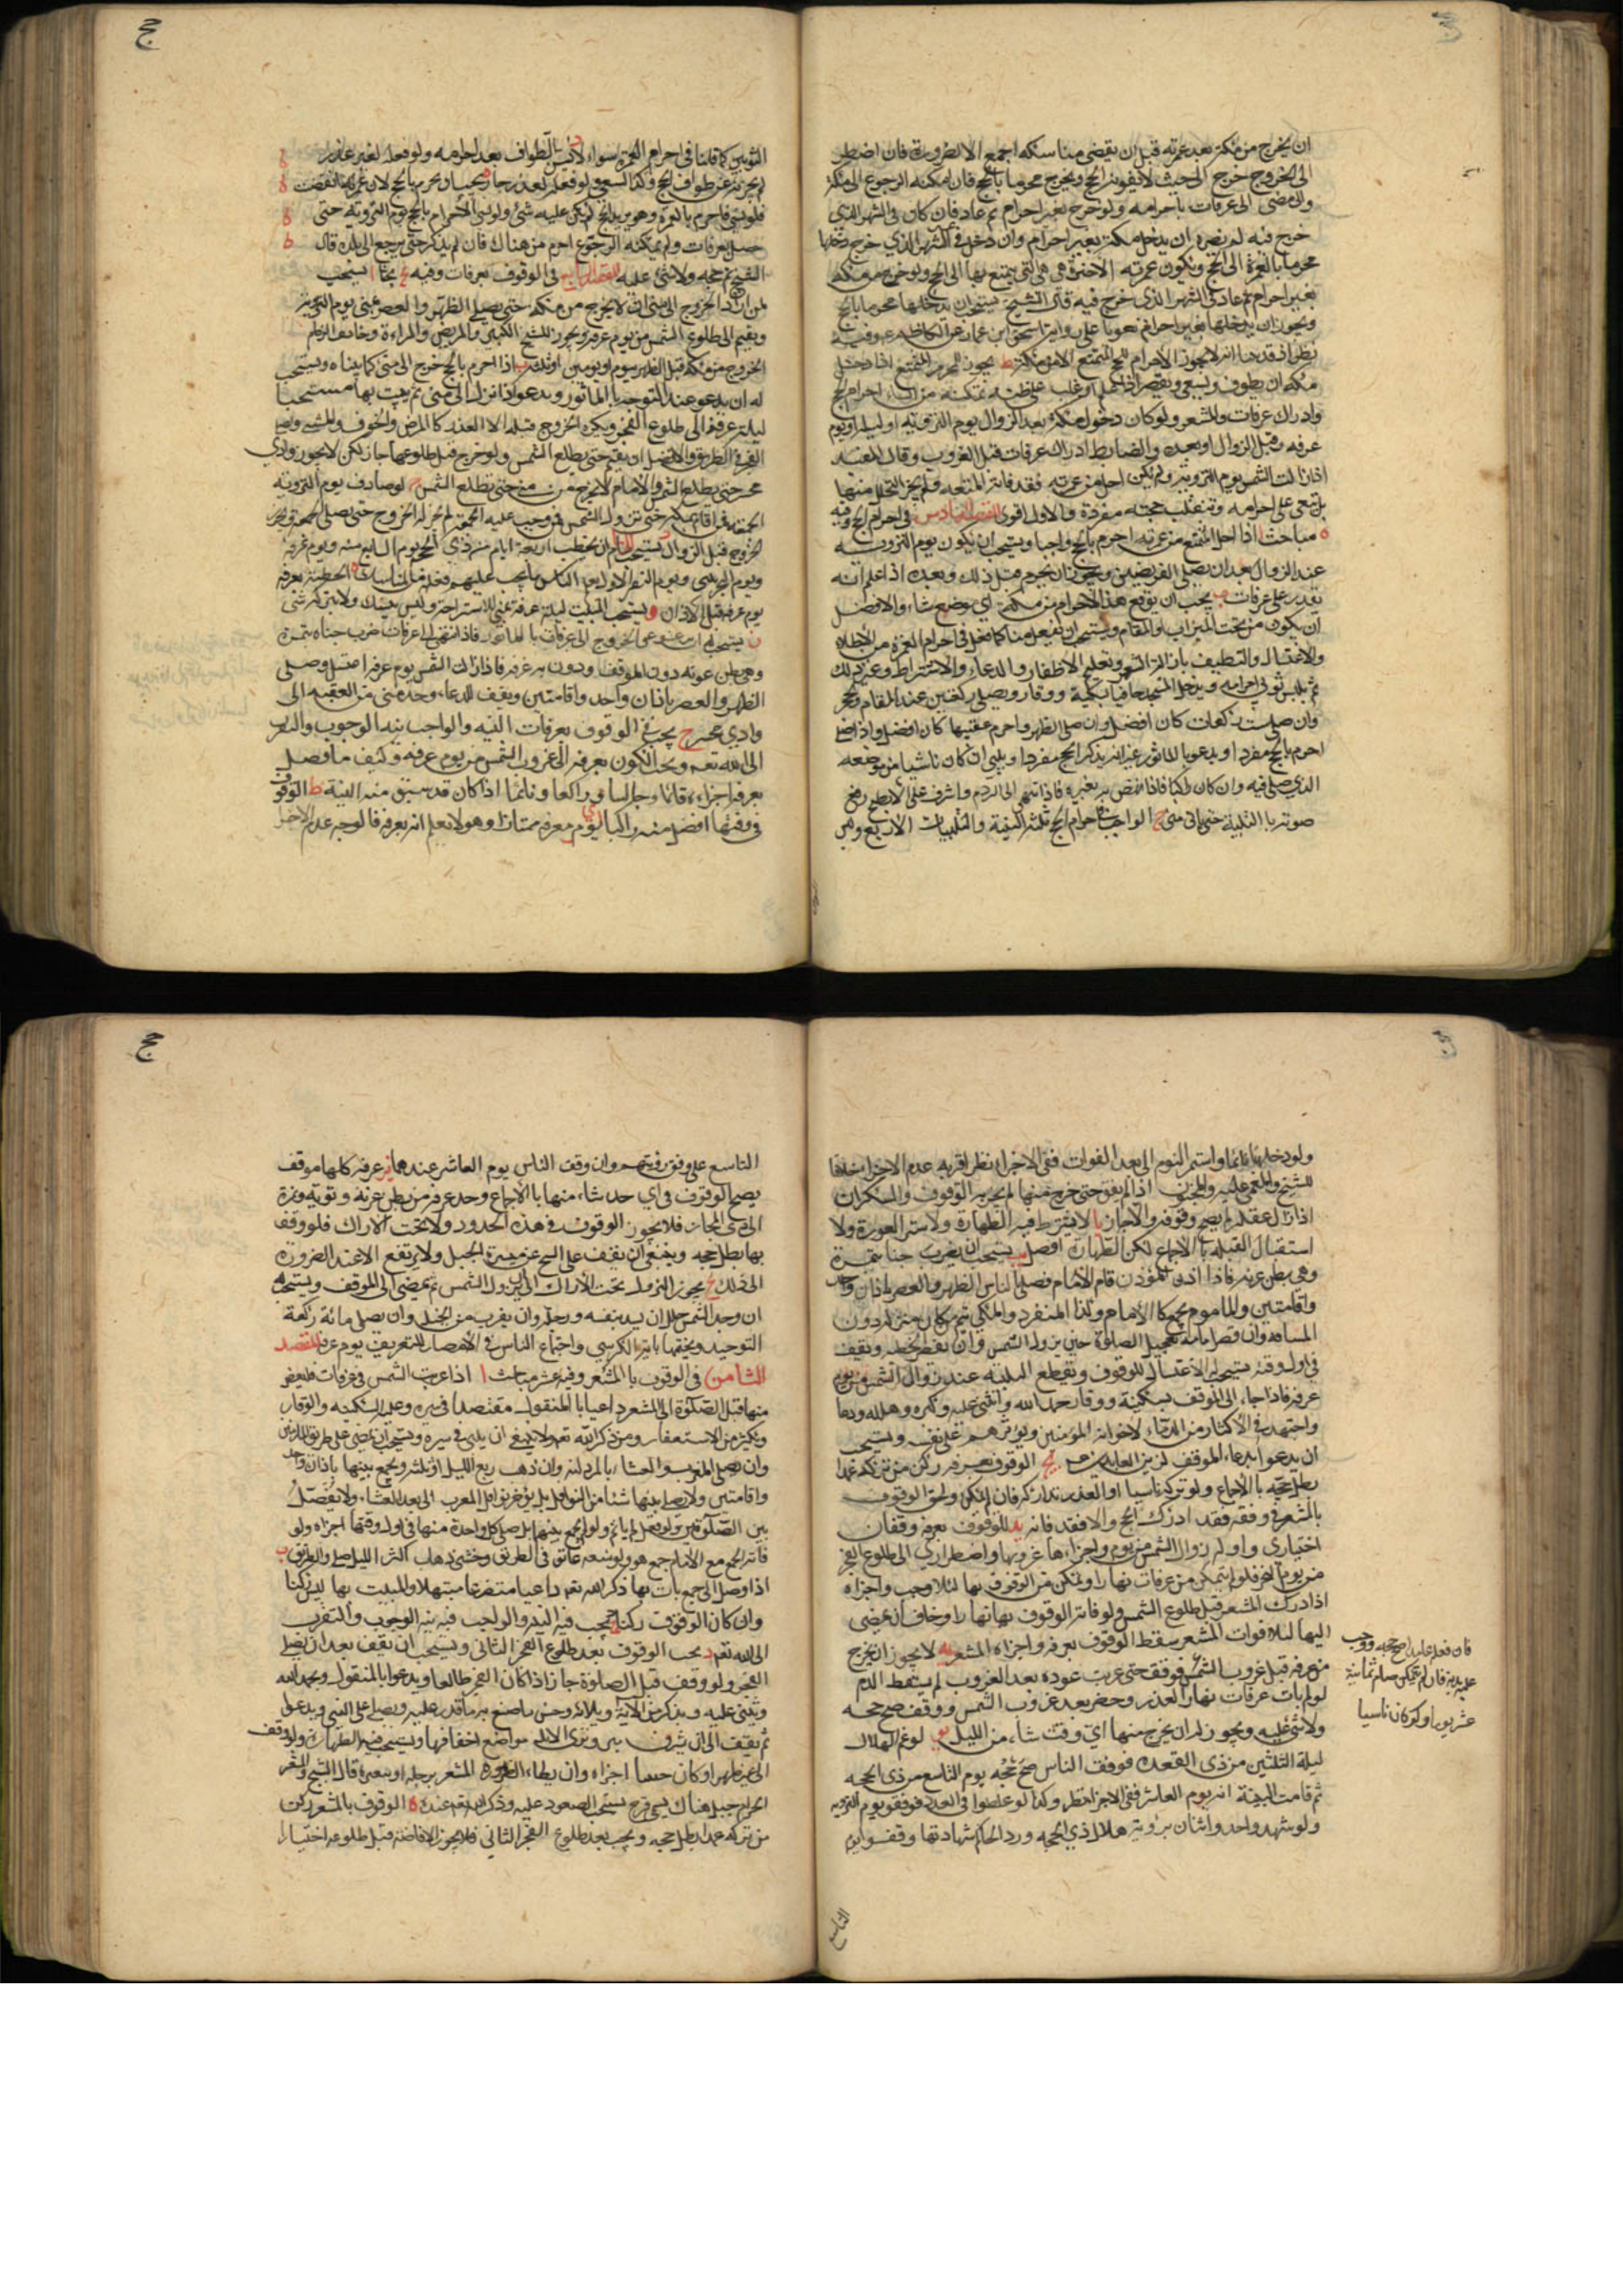 ان يخرج من مكة بعد عمرته قبل ان يقضى مناسكه اجمع الا لضرورة فان اضطر
الى الخروج خرج الى حيث لا يفوته الحج ويخرج محرما بالحج فان امكنه الرجوع الى مكة
والا مضى الى عرفات باحرامه ولو خرج بغير احرام ثم عاد فان كان فى الشهر الذي
خرج فيه لم يضره ان يدخل مكة بغير احرام وان دخل فى الشهر الذي خرج دخلها
محرما بالعمرة الى الحج وتكون عمرته الاخيرة هى التى يتمتع بها الى الحج ولو خرج من مكة
بغير احرام ثم عاد فى الشهر الذى خرج فيه قال الشيخ يستحب ان يدخلها محرما بالحج
ويجوز ان يدخلها بغير احرام تعويلا على رواية اسحق بن عمار عن الكاظم ع وفيه
نظر اذ قد بينا انه لا يجوز الاحرام لحج التمتع الا من مكة ط يجوز للمحرم المتمتع اذا دخل
مكة ان يطوف ويسعى ويقصر اذا علم او غلب على ظنه تمكنه من انشاء احرام الحج
وادراك عرفات والمشعر ولو كان دخول مكة بعد الزوال يوم التروية او ليلة او يوم
عرفه قبل الزوال او بعده والضابط ادراك عرفات قبل الغروب وقال المفيد
اذا زالت الشمس يوم التروية ولم يكن احل من عمرته فقد فاتته المتعه ولم يجز التحلل منها
بل تبقى على احرامه وتنقلب حجته مفردة والاول اقوى المقصد السادس فى احرام الحج وفيه
مباحث ا اذا احل المتمتع من عمرته احرم بالحج واجبا ويستحب ان يكون يوم التروية
عند الزوال بعد ان يصلى الفريضتين ويجوز ان يحرم قبل ذلك وبعده اذا علم انه
يقدر على عرفات ب يجب ان يوقع هذا الاحرام من مكة اي موضع شاء والافضل
ان يكون من تحت الميزاب والمقام ويستحب ان يفعل هنا كما فعل فى احرام العمرة من الاطلاء
والاغتسال والتنظيف بازالة الشعر وتقليم الاظفار والدعاء والاشتراط وغير ذلك
ثم يلبس ثوبى احرامه ويدخل المسجد حافيا بسكينة ووقار ويصلى ركعتين عند المقام او الحجر
وان صلى ست ركعات كان افضل وان صلى الظهر واحرم عقيبها كان افضل واذا صلى
احرم بالحج مفردا ويدعو بالماثور غير انه يذكر الحج مفردا ويلبى ان كان ماشيا من موضعه
الذى صلى فيه وان كان راكبا فاذا نهض به بعيره فاذا انتهى الى الردم واشرف على الابطح رفع
صوته بالتلبية حتى ياتى منى ج الواجب فى احرام الحج ثلثة النية والتلبيات الاربع ولبس
الثوبين كما قلنا فى احرام العمرة سواء د لا يسن الطواف بعد احرامه ولو فعله لغير عذر
لم يجزئه عن طواف الحج وكذا السعى ولو فعله لعذر جاز
فلو نسى فاحرم بالعمرة وهو يريد الحج لم يكن عليه شئ ولو نسى الاحرام بالحج يوم التروية حتى
حصل بعرفات ولم يمكنه الرجوع احرم من هناك فان لم يذكر حتى يرجع الى بلده قال
الشيخ تم حجه ولا شئ عليه المقصد السابع فى الوقوف بعرفات وفيه بحثا ا يستحب
لمن اراد الخروج الى منى ان لا يخرج من مكة حتى يصلى الظهر والعصر بمنى يوم التروية
ويقيم الى طلوع الشمس من يوم عرفة ويجوز للشيخ الكبير والمريض والمراءة وخائف الزحام
الخروج من مكة قبل الظهر بيوم او يومين او ثلثة ب اذا احرم بالحج خرج الى منى كما بيناه ويستحب
له ان يدعو عند التوجه بالماثور ويدعو اذا نزل الى منى ثم يبيت بها مستحبا
ليلة عرفة الى طلوع الفجر ويكره الخروج قبله الا لعذر كالمرض والخوف والمشى
الفجر فى الطريق والافضل ان يقيم حتى يطلع الشمس ولو خرج قبل طلوعها جاز لكن لا يجوز وادي
محسر حتى يطلع الشمس والامام لا يخرج من منى حتى تطلع الشمس ج لو صادف يوم التروية
الجمعة فمن اقام بمكة حتى تزول الشمس ممن وجب عليه الجمعة لم يجز له الخروج حتى يصلى الجمعة
الخروج قبل الزوال د يستحب للامام ان يخطب اربعة ايام من ذى الحجة يوم السابع منه ويوم عرفة
ويوم النحر بمنى ويوم النفر الاول يعلم الناس ما يجب عليهم فعله من المناسك ه الخطبة بعرفة
يوم عرفة قبل الاذان و يستحب المبيت ليلة عرفة بمنى للاستراحة وليس بنسك ولا يتركه شئ
ز يستحب له ان يدعو عند الخروج الى عرفات بالماثور فاذا انتهى الى عرفات ضرب خباه بنمرة
وهى بطن عرنه دون الموقف ودون عرفة فاذا زالت الشمس يوم عرفة اغتسل وصلى
الظهر والعصر باذان واحد واقامتين ويقف للدعاء وحد منى من العقبه الى
وادي محسر ح يجب فى الوقوف بعرفات النيه والواجب نية الوجوب والتقرب
الى الله تعه ويجب الكون بعرفة الى غروب الشمس من يوم عرفه وكيف ما حصل
بعرفة اجزاه قائما وجالسا وراكعا ونائما اذا كان قد سبق منه النية ط الوقوف
فى وقتها افضل منه راكبا ي لو مر بعرفة مجتازا وهو لا يعلم انه بعرفة فالوجه عدم الاجزاء
ولو دخلها نائما واستمر النوم الى بعد الفوات ففى الاجزاء نظر اقربه عدم الاجزاء خلافا
للشيخ والمغمى عليه والمجنون اذا لم يفق حتى خرج منها لم يجزئه الوقوف والسكران
اذا زال عقله لم يصح وقوفه والا جاز يا لا يشترط فيه الطهارة ولا ستر العورة ولا
استقبال القبلة بالاجماع لكن الطهارة افضل يب يستحب ان يضرب خباه بنمرة
وهى بطن عرنه فاذا اذن المؤذن قام الامام فصلى بالناس الظهر والعصر باذان واحد
واقامتين والماموم يجمع كالامام وكذا المنفرد والمكى يتم
المسافة وان قصر امامه تعجيل الصلوة حين يزول الشمس وان يقصر الخطبة ويقف
فى اول وقته ويستحب له الاغتسال للوقوف ويقطع التلبية عند زوال الشمس من يوم
عرفة فاذا جاء الى الموقف بسكينة ووقار حمد الله واثنى عليه وكبره وهلله ودعا
واجتهد فى الاكثار من الدعاء لاخوانه المؤمنين ويؤثرهم على نفسه ويستحب
ان يدعو بدعاء الموقف لزين العابدين ع يج الوقوف بعرفة ركن من تركه عمدا
بطل حجه بالاجماع ولو تركه ناسيا او لعذر تداركه فان لم يمكن ولحق الوقوف
بالمشعر فى وقته فقد ادرك الحج والا فقد فاته يد للوقوف بعرفة وقتان
اختيارى واوله زوال الشمس من يوم واجزاءها غروبها واضطرارى الى طلوع الفجر
من يوم النحر فلو لم يتمكن من عرفات نهارا وتمكن من الوقوف بها ليلا وجب واجزاه
اذا ادرك المشعر قبل طلوع الشمس ولو فاته الوقوف بها نهارا وخاف ان مضى
اليها ليلا فوات المشعر سقط الوقوف بعرفة واجزاه المشعر يه لا يجوز ان يخرج
من عرفة قبل غروب الشمس فوقف حتى غربت عوده بعد الغروب لم يسقط الدم
لو لم يات عرفات نهارا لعذر وحضر بعد غروب الشمس ووقف صح حجه
ولا شئ عليه ويجوز له ان يخرج منها اي وقت شاء من الليل يو لو غم الهلال
ليلة الثلثين من ذى القعدة فوقف الناس صح حجه يوم التاسع من ذى الحجه
ثم قامت البينة انه يوم العاشر ففى الاجزاء نظر وكذا لو غلطوا فى العدد فوقفوا يوم التروية
ولو شهد واحد واثنان برؤية هلال ذى الحجه ورد الحاكم شهادتها وقفوا يوم
فان فعل عامدا صح حجه ووجب
عليه بدنة فان لم يتمكن صام ثمانية
عشر يوما ولو كان ناسيا
التاسع
التاسع على وفق رؤيتهم وان وقف الناس يوم العاشر عندهما يز عرفة كلها موقف
يصح الوقوف فى اي حد شاء منها بالاجماع وحد عرفة من بطن عرنه وثوية ونمرة
الى ذى المجاز فلا يجوز الوقوف فى هذه الحدود ولا تحت الاراك فلو وقف
بها بطل حجه وينبغى ان يقف على السفح عن ميسرة الجبل ولا يرتفع الا عند الضرورة
الى ذلك يح يجوز النزول تحت الاراك الى ان يزول الشمس ثم يمضى الى الموقف ويستحب له
ان وجد خللا ان يسده بنفسه ورحله وان يقرب من الجبل وان يصلى مائة ركعة
التوحيد ويختمها باية الكرسى واجتماع الناس فى الامصار للتعريف يوم عرفة المقصد
الثامن فى الوقوف بالمشعر وفيه عشر مباحث ا اذا غربت الشمس فى عرفات فليفض
منها قبل الصلوة الى المشعر داعيا بالمنقول مقتصدا فى سيره وعليه السكينه والوقار
ويكثر من الاستغفار ومن ذكر الله تعه ولا ينبغى ان يلبى فى سيره ويستحب ان يمضى على طريق المازمين
وان يصلى المغرب والعشاء بالمزدلفة وان ذهب ربع الليل او ثلثه ويجمع بينهما باذان واحد
واقامتين ولا يصلى بينهما شيئا من النوافل بل يؤخر نوافل المغرب الى بعد العشاء ولا يفصل
بين الصلوتين ولو فعل لم ياثم ولو لم يجمع بينهما بل صلى كل واحدة منهما فى اول وقتها اجزاه ولو
فاته الجمع مع الامام جمع هو ولو منعه عائق فى الطريق وخشى ذهاب اكثر الليل صلى فى الطريق ب
اذا وصل الى جمع بات بها ذكر الله تعه داعيا متضرعا مبتهلا والمبيت بها ليس ركنا
وان كان الوقوف ركنا ج يجب فيه النية والواجب فيه نية الوجوب والتقرب
الى الله تعه د يجب الوقوف بعد طلوع الفجر الثانى ويستحب ان يقف بعد ان يصلى
الفجر ولو وقف قبل الصلوة جاز اذا كان الفجر طالعا ويدعو بالمنقول ويحمد الله
ويثنى عليه ويذكر من الآئه وبلائه وحسن ما صنع به ما قدر عليه ويصلى على النبى ويدعو
ثم يقف الى ان يشرق ثبير وترى الابل مواضع اخفافها ويستحب فيه الطهارة ولو وقف
الى غير طهر او كان جنبا اجزاه وان يطاء الصرورة المشعر برجله او ببعيره قال الشيخ والمشعر
الحرام جبل هناك يسمى قزح يستحب الصعود عليه وذكر الله تعه عنده ه الوقوف بالمشعر ركن
من تركه عمدا بطل حجه ويجب بعد طلوع الفجر الثانى فلا يجوز الافاضة قبل طلوعه اختيارا